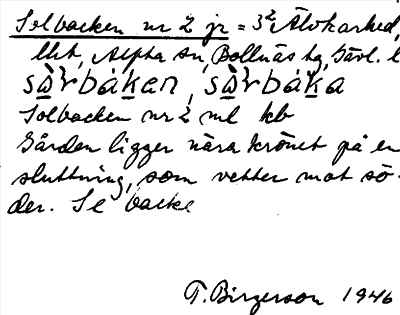 Solbacken nr 2 jr = 3² Älvkarhed,
lht, Alfta sn, Bollnäs tg, Gävl. l
sɷ̀rbákan, sɷ̀rbáka
Solbacken nr 2 ml kb
Gården ligger nära krönet på en
sluttning, som vetter mot sö-
der. Se backe
T. Birgerson 1946